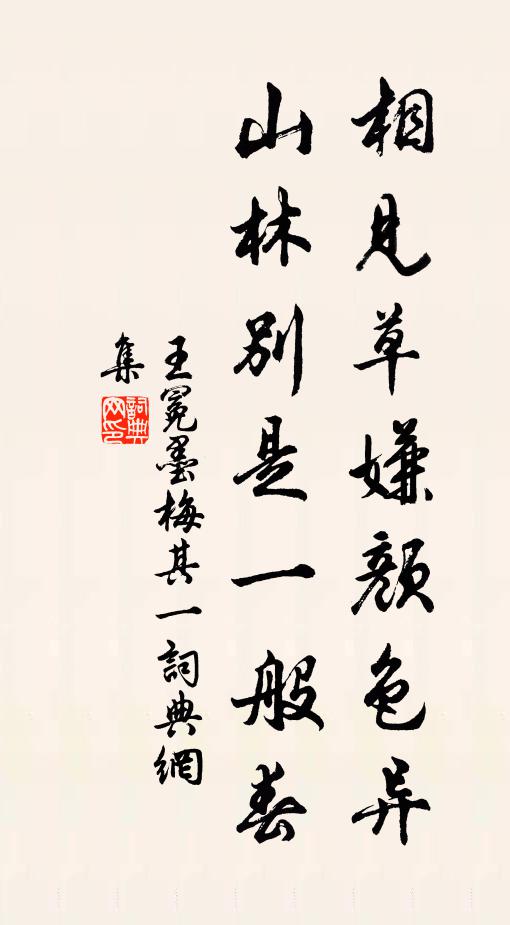 相見草嫌顏色异
山林別是一般春
王冕墨梅其一詞典網
集
詞典網印